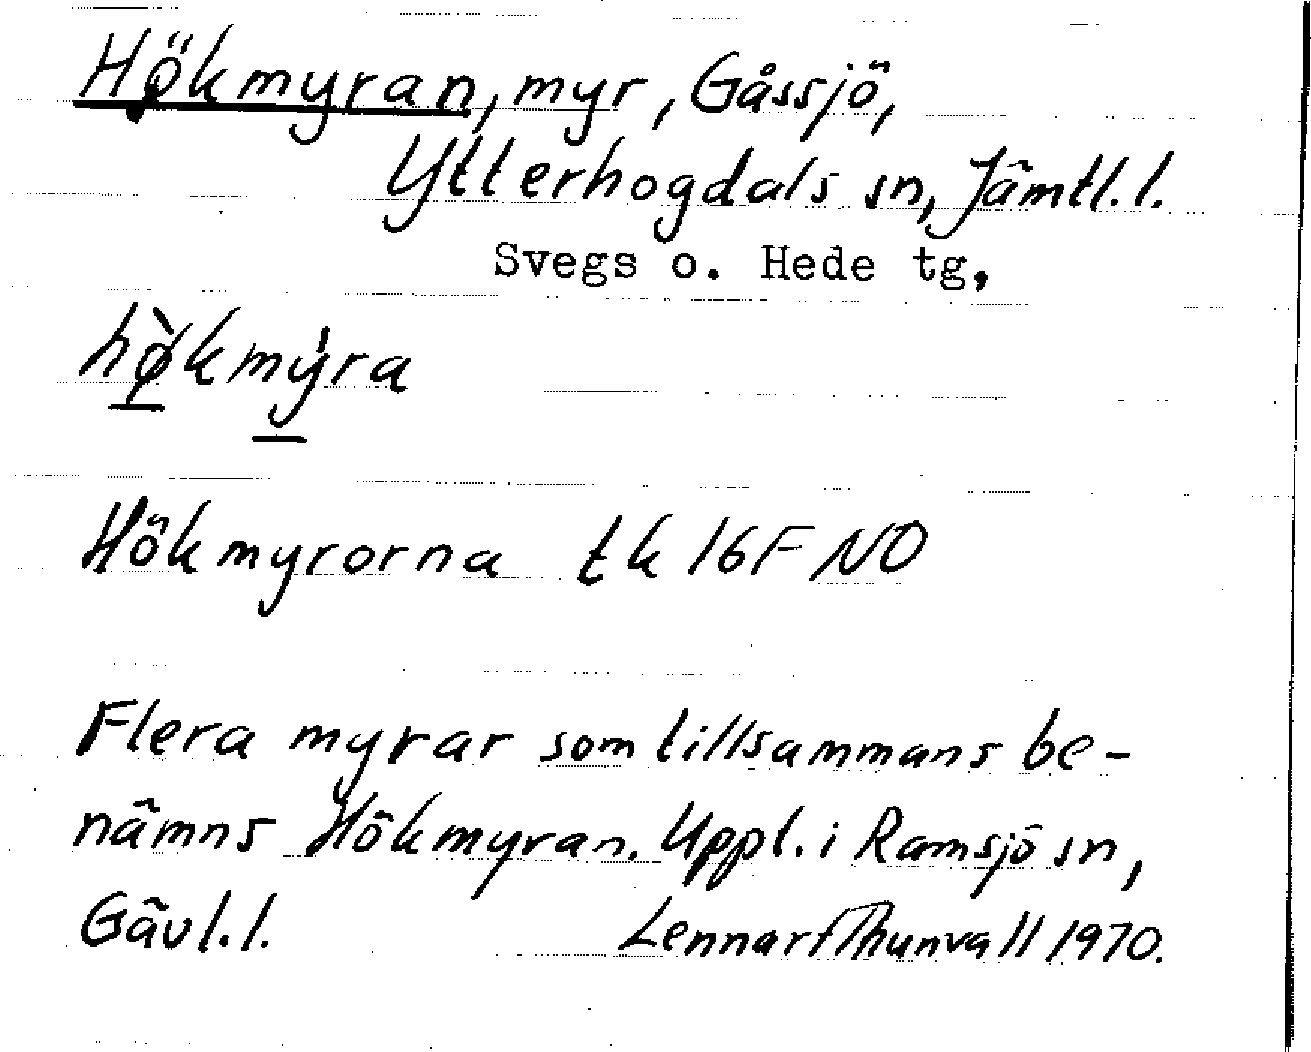 Hökmyran, myr, Gåssjö,
Ytterhogdals sn, Jämtl. l.
Svegs o. Hede tg,
hø̀kmýra
Hökmyrorna tk 16F NO
Flera myrar som tillsammans be-
nämns Hökmyran. Uppl. i Ramsjö sn,
Gävl. l. Lennart Thunvall 1970.